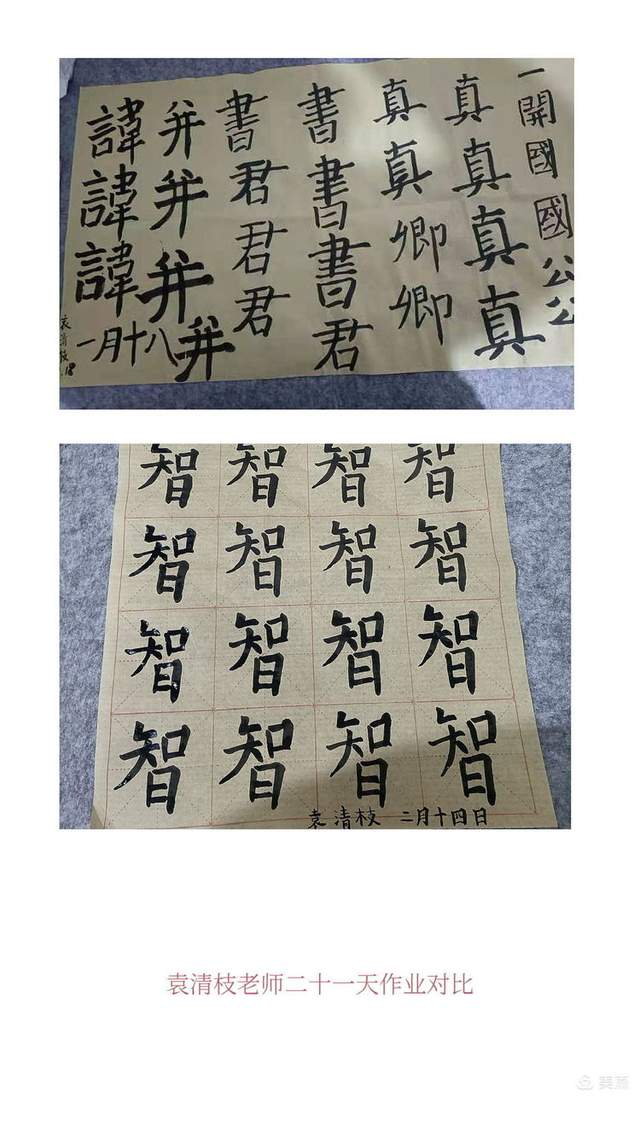 一開國國公公
真真真真
真真卿卿
書書書君
書君君君
并并并并
諱諱諱
一月十八
袁清枝
智智智智
智智智智
智智智智
智智智智
袁清枝 二月十四日
袁清枝老师二十一天作业对比
美篇